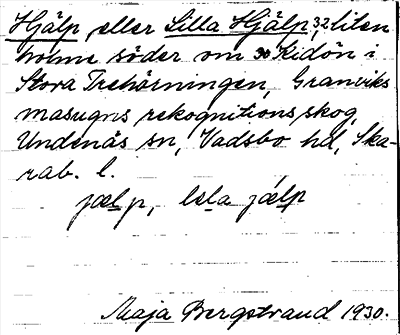 Hjälp eller Lilla Hjälp, 32 liten
holme söder om 30 Kidön i
Stora Trehörningen, Granviks
masugns rekognitionsskog,
Undenäs sn, Vadsbo hd, Ska-
rab. l.
jælp, lela jælp
Maja Bergstrand 1930.